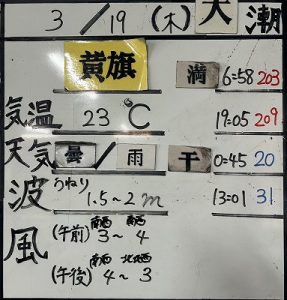 3/19(木)大潮
黄旗 満 6:58 203
気温 23℃ 19:05 209
天気 曇/雨 干 0:45 20
波 うねり 1.5~2m 13:01 31
風 (午前) 南西 3~ 南西 4
(午後) 南西 4~ 北西 3